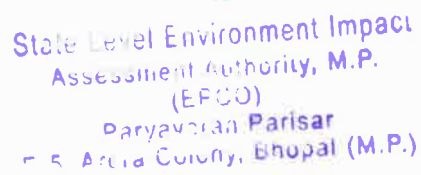 State Level Environment Impact
Assessment Authority, M.P.
(EPCO)
Paryavaran Parisar
Colony, Bhopal (M.P.)